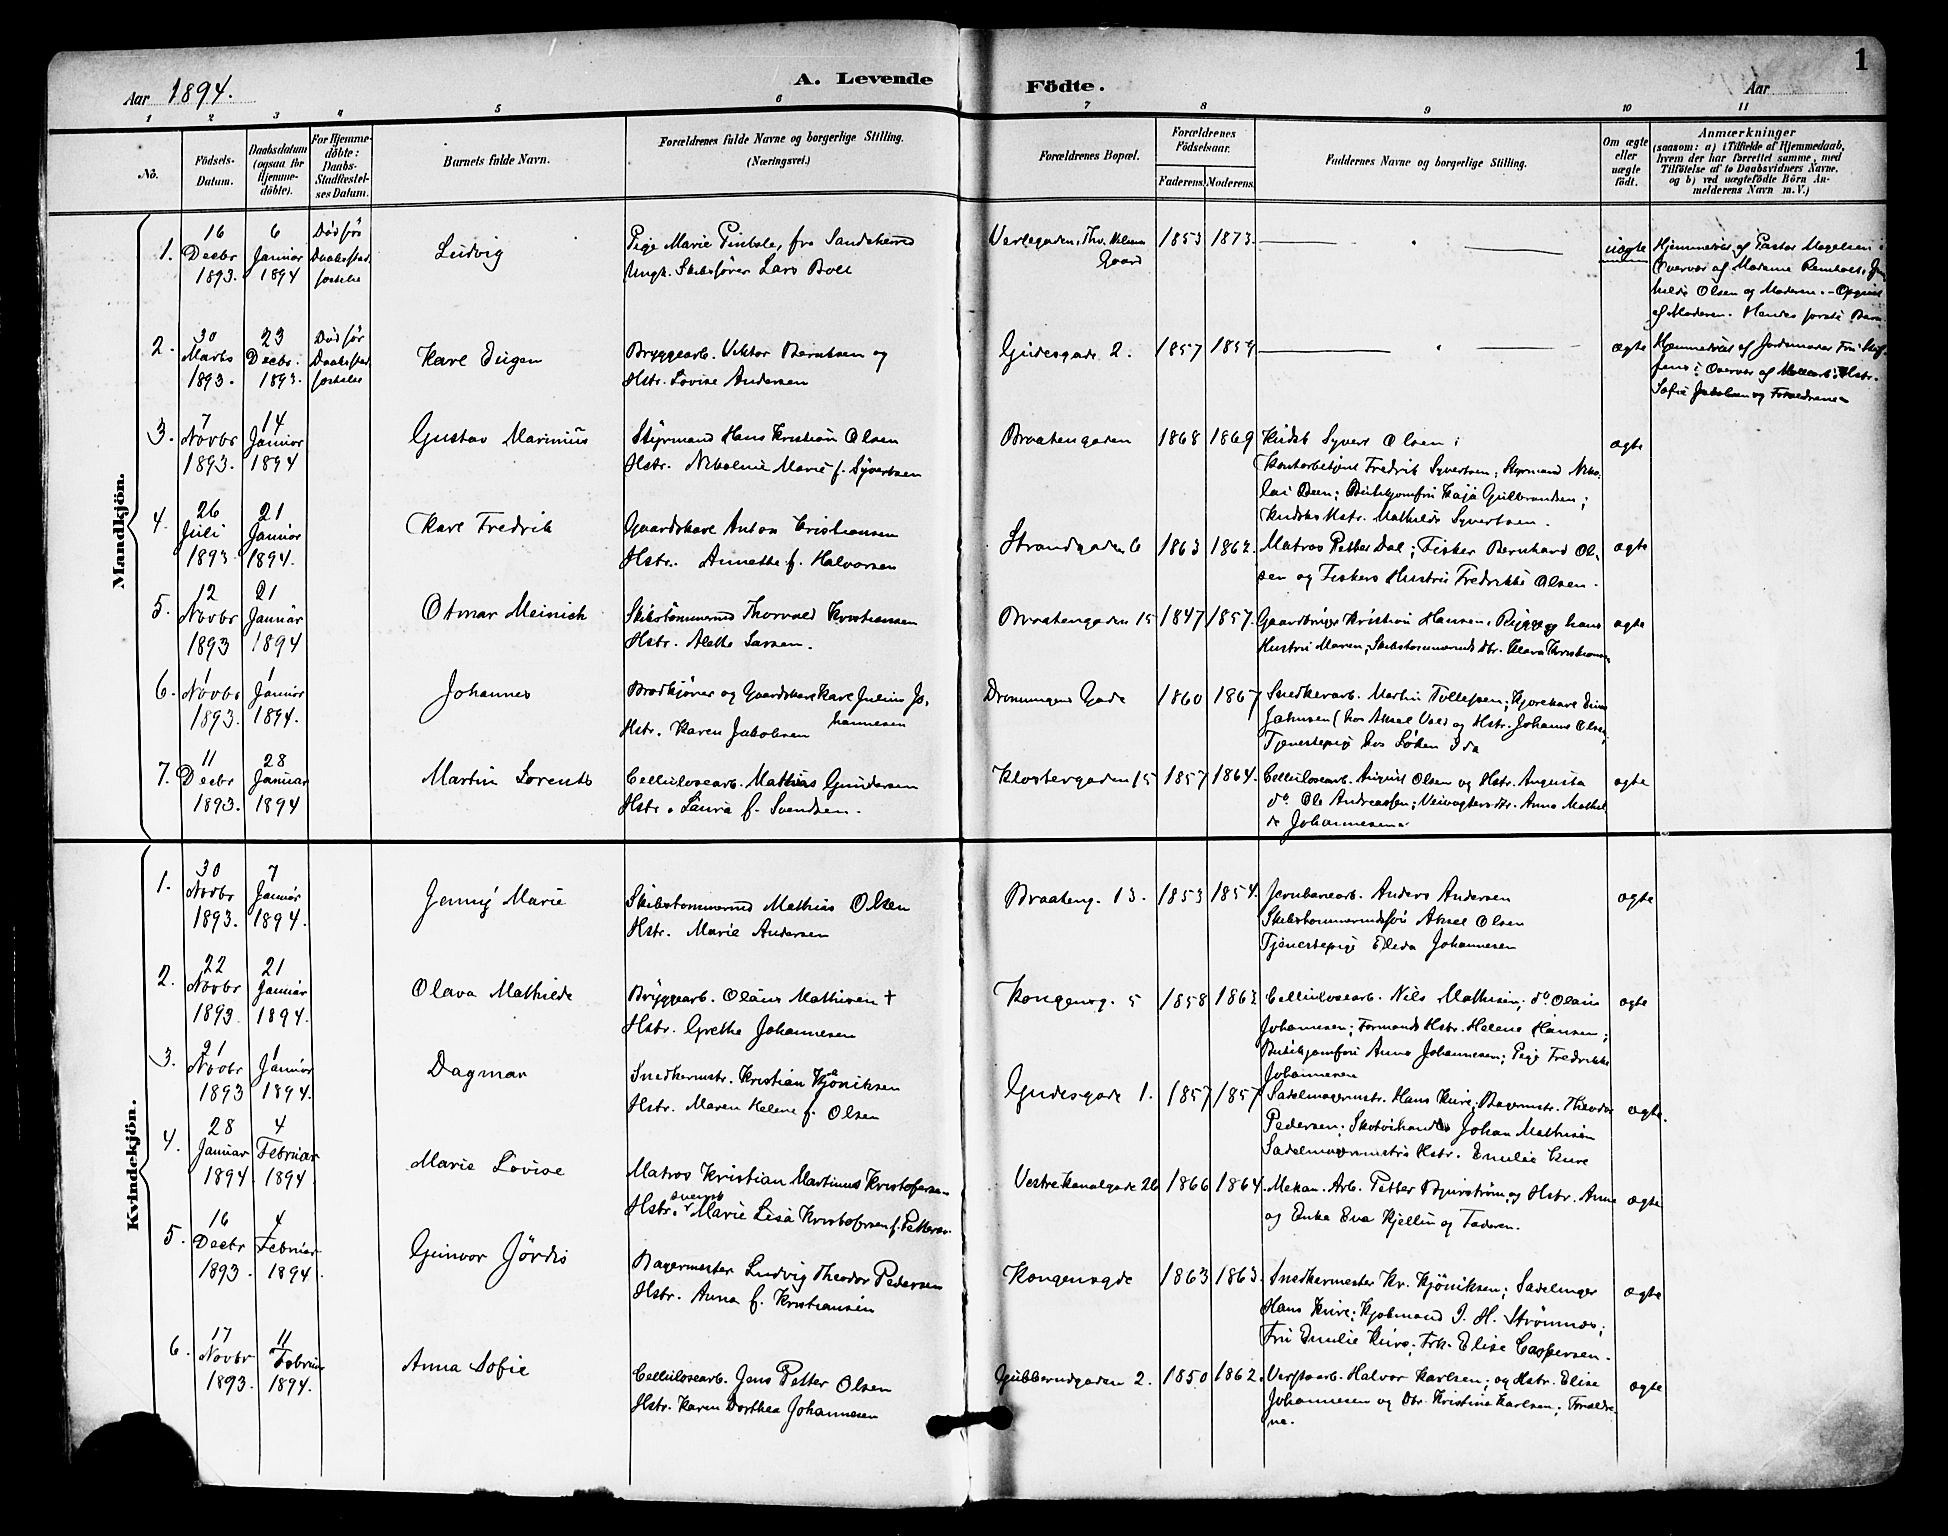 1
Aar 1894.
A. Levende Födte.
Aar
1 2 3 4 5 6 7 8 9 10 11
No.
Födsels-Datum.
Daabsdatum (ogsaa for Hjemmedöbte).
For Hjemmedöbte: Daabs-Stadfæstelses Datum.
Barnets fulde Navn.
Forældrenes fulde Navne og borgerlige Stilling. (Næringsvei.)
Forældrenes Bopæl.
Forældrenes Födselsaar.
Faderens. Moderens.
Faddernes Navne og borgerlige Stilling.
Om ægte eller uægte födt.
Anmærkninger
(saasom: a) i Tilfælde af Hjemmedaab,
hvem der har forrettet samme, med
Tilföielse af to Daabsvidners Navne,
og b) ved uægtefödte Börn An-
melderens Navn m. V.)
Mandkjön.
1. 16 Decbr 1893. 6 Januar 1894 Död før Daabsstadfæstelse Ludvig
Pige Marie, fra Sandehered
Ungk. Skibsfører Lars Boll
Gaard 1853 1873. uægte
Hjemmedøbt af Pastor Magelsen i
Overvær af Madame
Olsen og Moderen. - Opgivet
af Moderen. Hendes første Barn.
2. 30 Marts 1893. 23 Decbr. 1893. Död før Daabsstadfæstelse Karl Eugen
Bryggearb. Viktor Berntsen og
Hstr. Lovise Andersen
Gudesgade 2. 1857 1859 ægte
Hjemmedøbt af Jordmoder Fru
i Overvær af Hstr.
Sofie Jakobsen og Forældrene
3. 7 Novbr 1893. 14 Januar 1894 Gustav Marinius
Styrmand Hans Kristian Olsen
Hstr. Nikoline Marie f. Syvertsen
Braatengaden 1868 1869
Kudsk Syvert Olsen;
Kontorbetjent Fredrik Syvertsen; Styrmand Niko-
lai Been; Butikjomfru Kaja Gulbrandsen;
Kudsks Hstr. Mathilde Syvertsen.
ægte
4. 26 Juli 1893. 21 Januar 1894. Karl Fredrik
Gaardskarl Anton Kristiansen
Hstr. Annette f. Halvorsen
Strandgaden 6 1863 1862.
Matros Petter Dal; Fisker Bernhard Ol-
sen og Fiskers Hustru Fredrikke Olsen.
ægte
5. 12 Novbr 1893 21 Januar 1894 Otmar Meinich
Skibstömmermd Thorvald Kristiansen
Hstr. Alette Larsen.
Braatengaden 15 1847 1857.
Gaardbruger Kristian Hansen, Bygge og hans
Hustru Maren; Skibstömmermds Dtr. Klara Kristiansen
ægte
6. 1 Novbr 1893. 1 Januar 1894. Johannes
Brödkjører og Gaardskarl Karl Julius Jo-
hannesen
Hstr. Karen Jakobsen
Dronningens Gade 1860 1867
Snedkerarb. Martin Tollefsen; Kjørekarl
Jahnsen (hos Aksel Vold og Hstr. Johanne Olsen;
Tjenestepige hos Løken Ida
7. 11 Decbr 1893. 28 Januar 1894 Martin Lorents
Cellulosearb. Mathias Gundersen
Hstr. Laura f. Svendsen.
Klostergaden 15 1857 1864.
Cellulosearb. August Olsen og Hstr. Augusta
do. Ole Andreassen; Veivogters Dtr. Anna Mathil-
de Johannesen
ægte
Kvindekjön.
1. 30 Novbr 1893. 7 Januar 1894. Jenny Marie
Skibstömmermd Mathias Olsen
Hstr. Marie Andersen
Braateng. 13. 1853 1854.
Jernbanearb. Anders Andersen
Skibstömmermd Aksel Olsen
Tjenestepige Elida Johannesen
ægte
2. 22 Novbr 1893. 21 Januar 1894. Olava Mathilde
Bryggearb. Olaus Mathisen †
Hstr. Grethe Johannesen
Kongensg. 5 1858 1863
Cellulosearb. Nils Mathisen; do Olaus
Johannesen; Formands Hstr. Helene Hansen;
Butikjomfru Anna Johannesen; Pige Fredrikke
Johannesen
ægte
3. 21 Novbr 1893 1 Januar 1894. Dagmar
Snedkermstr. Kristian Kjöniksen
Hstr. Maren Helene f. Olsen
Gudesgade 1. 1857 1857
Sadelmagermstr. Hans Kure; Bagermstr. Theodor
Pedersen; Skotöihandler Johan Mathisen
Sadelmagermstrs Hstr. Emilie Kure
ægte.
4. 28 Januar 1894 4 Februar 1894. Marie Lovise
Matros Kristian Martinus Kristofersen
svensk
Hstr. Marie Lisa Kristofersen f. Petterson
Vestre Kanalgade 26 1866 1864.
Mekan. Arb. Petter Bjurström og Hstr. Anna
og Enke Eva Kjellin og Faderen.
ægte
5. 16 Decbr 1893. 4 Februar 1894. Gunvor Jördis
Bagermester Ludvig Theodor Pedersen
Hstr. Anna f. Kristiansen
Kongensgde 1863 1863.
Snedkermester Kr. Kjöniksen; Sadelmager
Hans Kure; Kjøbmand J. H. Strömnæs;
Fru Emilie Kure; Frk. Elise Caspersen.
ægte
6. 17 Novbr 1893. 11 Februar 1894. Anna Sofie
Cellulosearb. Jens Petter Olsen
Hstr. Karen Dorthea Johannesen
Gubberudgaden 2. 1850 1862.
Verftsarb. Halvor Karlsen; og Hstr. Elise
Johannesen og Dtr. Kristine Karlsen; Foreldre-
ne.
ægte